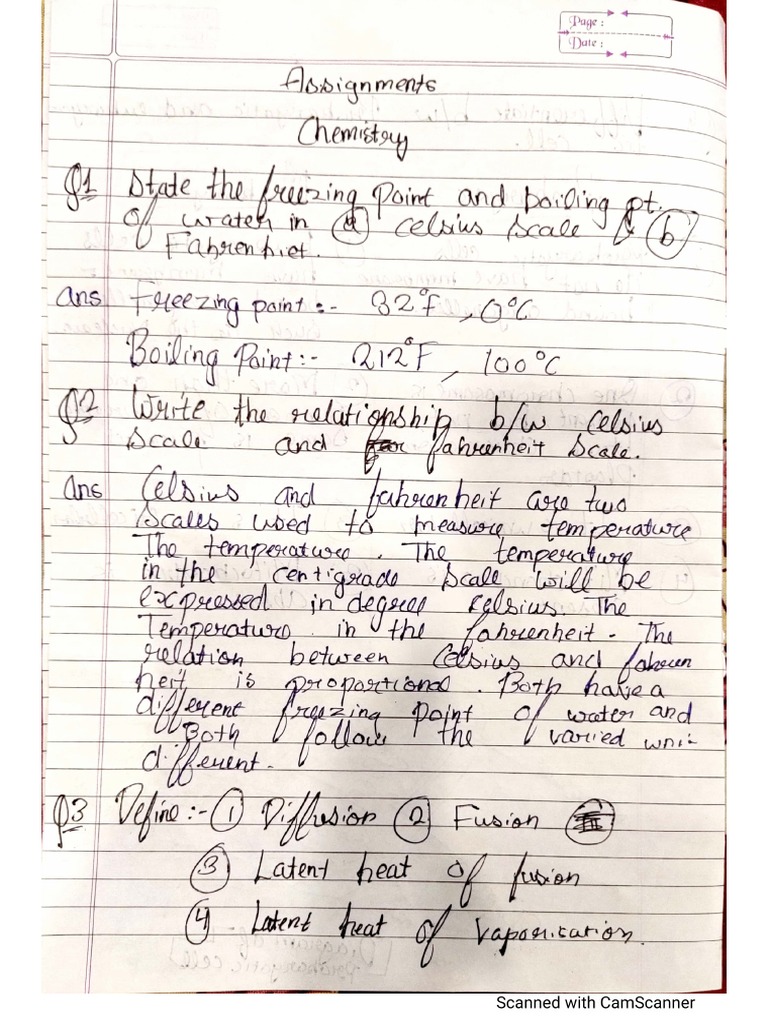 Page :
Date :
Assignments
Chemistry
Q1 State the freezing point and boiling pt.
of water in (a) celsius scale & (b)
Fahrenhiet.
ans Freezing point :- 32°F, 0°C
Boiling Point :- 212°F, 100°C
Q2 Write the relationship b/w Celsius
scale and fahrenheit scale.
Ans Celsius and fahrenheit are two
scales used to measure temperature
The temperature. The temperature
in the centigrade scale will be
expressed in degree celsius. The
Temperature in the fahrenheit. The
relation between Celsius and fahren
heit is proportional. Both have a
different freezing point of water and
Both follow the varied
different.
Q3 Define :- (1) Diffusion (2) Fusion
(3) Latent heat of fusion
(4) Latent heat of vaporisation.
Scanned with CamScanner